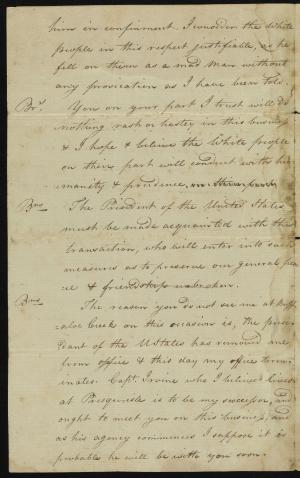 him in confinement I consider the White
people in this respect justifiable, as he
fell on them as a mad man without
any provocation as I have been told.
Brs. You on your part I trust will do
nothing rash or hasty in this business
& I hope & believe the White people
on their part will conduct with hu
manity & prudence, on their part
Brs The President of the United States
must be made acquainted with the
transaction, who will enter into such
measures as to preserve our general pea
ce & friendship unbroken.
Brs The reason you do not see me at Buff
aloe Creek on this occasion is, the presi
dant of the UStates has removed me
from office & this day my office term
inates. Capt. Irvine who I believe lives
at Presquisle is to be my successor, and
ought to meet you on this business, and
as his agency commences I suppose it is
probable he will be with you soon.